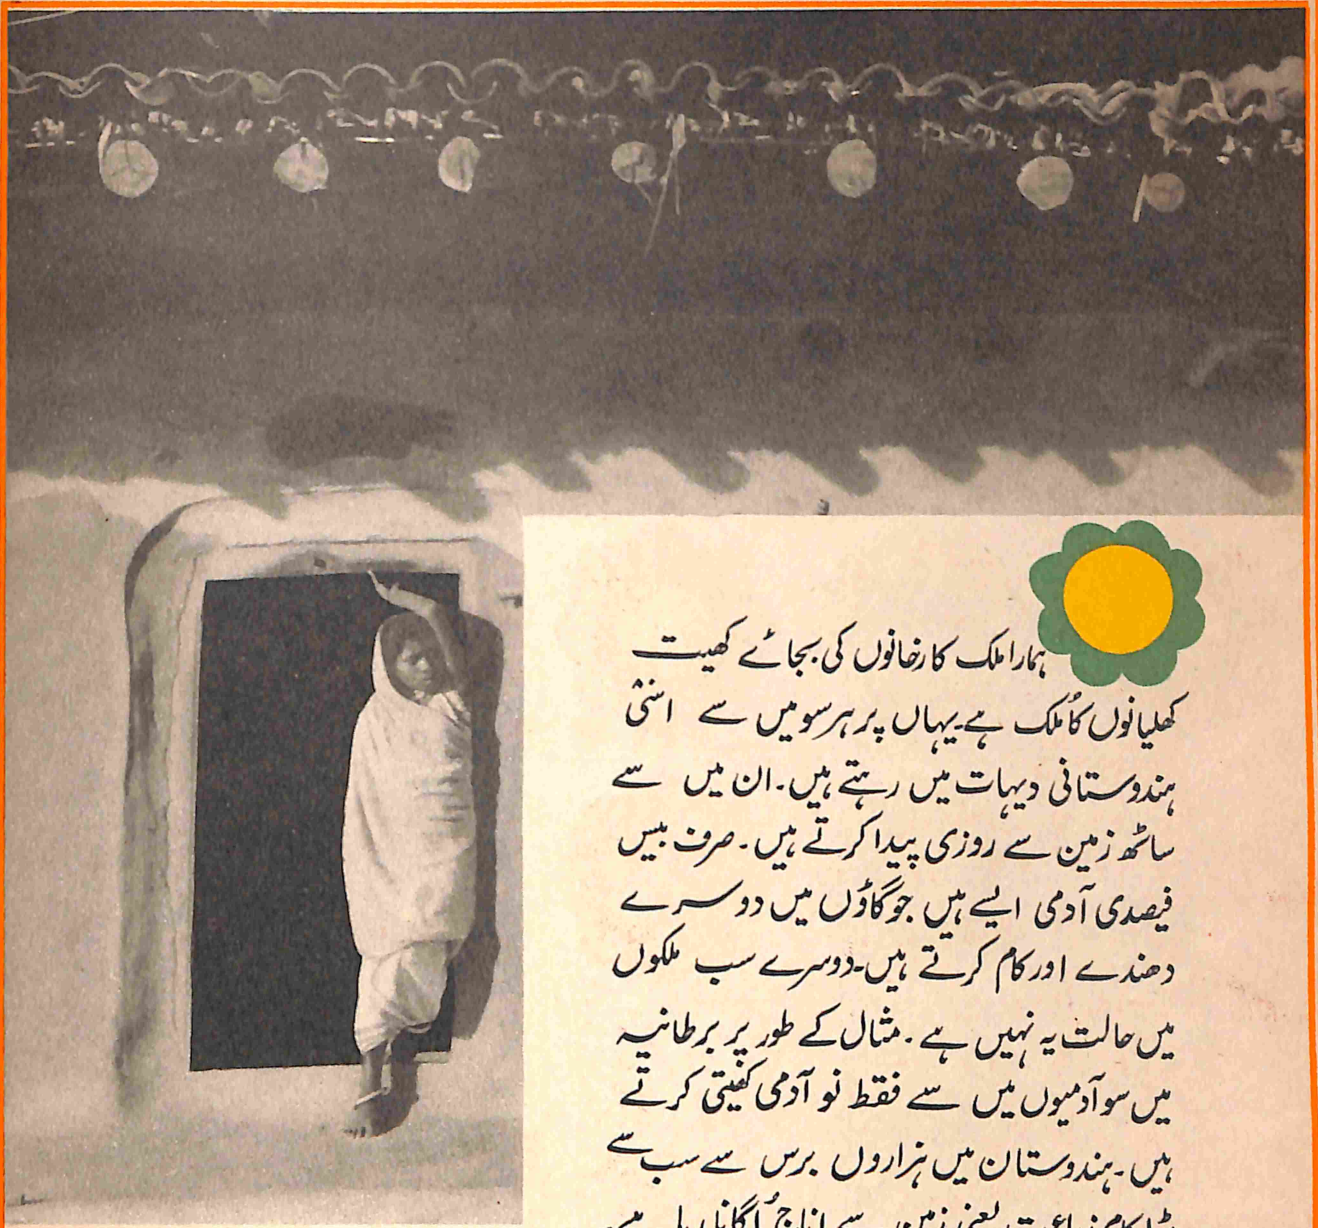 ہمارا ملک کارخانوں کی بجائے کھیت
کھلیانوں کا ملک ہے۔ یہاں پر ہر سو میں سے اسّی
ہندوستانی دیہات میں رہتے ہیں۔ ان میں سے
ساٹھ زمین سے روزی پیدا کرتے ہیں۔ صرف بیس
فیصدی آدمی ایسے ہیں جو گاؤں میں دوسرے
دھندے اور کام کرتے ہیں۔ دوسرے سب ملکوں
میں حالت یہ نہیں ہے۔ مثال کے طور پر برطانیہ
میں سو آدمیوں میں سے فقط نو آدمی کھیتی کرتے
ہیں۔ ہندوستان میں ہزاروں برس سے سب سے